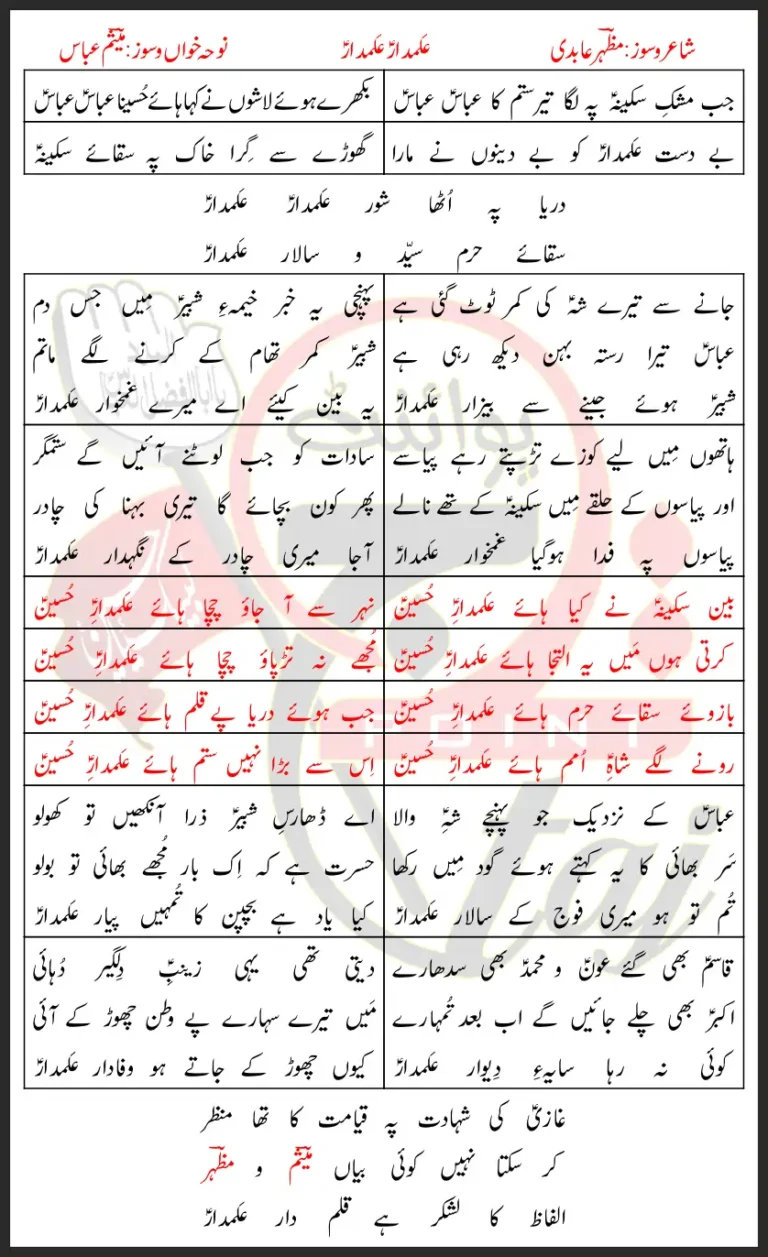 شاعر و سوز: مظہر عابدی علمدارؑ علمدارؑ نوحہ خواں و سوز: میثم عباس
جب مشکِ سکینہؑ پہ لگا تیر ستم کا عباسؑ عباسؑ
بکھرے ہوئے لاشوں نے کہا ہائے حُسینا عباسؑ عباسؑ
بے دست علمدارؑ کو بے دینوں نے مارا
گھوڑے سے گِرا خاک پہ سقائے سکینہؑ
دریا پہ اُٹھا شور علمدارؑ علمدارؑ
سقائے حرم سیّد و سالار علمدارؑ
جانے سے تیرے شہؑ کی کمر ٹوٹ گئی ہے
عباسؑ تیرا رستہ بہن دیکھ رہی ہے
شبیرؑ ہوئے جینے سے بیزار علمدارؑ
پہنچی یہ خبر خیمہءِ شبیرؑ مِیں جس دم
شبیرؑ کمر تھام کے کرنے لگے ماتم
یہ بین کیئے اے میرے غمخوار علمدارؑ
ہاتھوں مِیں لیے کوزے تڑپتے رہے پیاسے
اور پیاسوں کے حلقے مِیں سکینہؑ کے تھے نالے
پیاسوں پہ فدا ہوگیا غمخوار علمدارؑ
سادات کو جب لوٹنے آئیں گے ستمگر
پھر کون بچائے گا تیری بہنا کی چادر
آجا میری چادر کے نگہدار علمدارؑ
بین سکینہؑ نے کیا ہائے علمدارِؑ حُسینؑ
نہر سے آ جاؤ چچا ہائے علمدارِؑ حُسینؑ
کرتی ہوں مَیں یہ التجا ہائے علمدارِؑ حُسینؑ
مُجھے نہ تڑپاؤ چچا ہائے علمدارِؑ حُسینؑ
بازوئے سقائے حرم ہائے علمدارِؑ حُسینؑ
جب ہوئے دریا پے قلم ہائے علمدارِؑ حُسینؑ
رونے لگے شاہِؑ اُمم ہائے علمدارِؑ حُسینؑ
اِس سے بڑا نہیں ستم ہائے علمدارِؑ حُسینؑ
عباسؑ کے نزدیک جو پہنچے شہِؑ والا
سَر بھائی کا یہ کہتے ہوئے گود مِیں رکھا
تُم تو ہو میری فوج کے سالار علمدارؑ
اے ڈھارسِ شبیرؑ ذرا آنکھیں تو کھولو
حسرت ہے کہ اِک بار مُجھے بھائی تو بولو
کیا یاد ہے بچپن کا تُمہیں پیار علمدارؑ
قاسمؑ بھی گئے عونؑ و محمدؑ بھی سدھارے
اکبرؑ بھی چلے جائیں گے اب بعد تُمہارے
کوئی نہ رہا سایہءِ دِیوار علمدارؑ
دیتی تھی یہی زینبِؑ دِلگیر دُہائی
مَیں تیرے سہارے پے وطن چھوڑ کے آئی
کیوں چھوڑ کے جاتے ہو وفادار علمدارؑ
غازیؑ کی شہادت پہ قیامت کا تھا منظر
کر سکتا نہیں کوئی بیاں میثم و مظہر
الفاظ کا لشکر ہے قلم دار علمدارؑ
پوائنٹ
POINT
taj